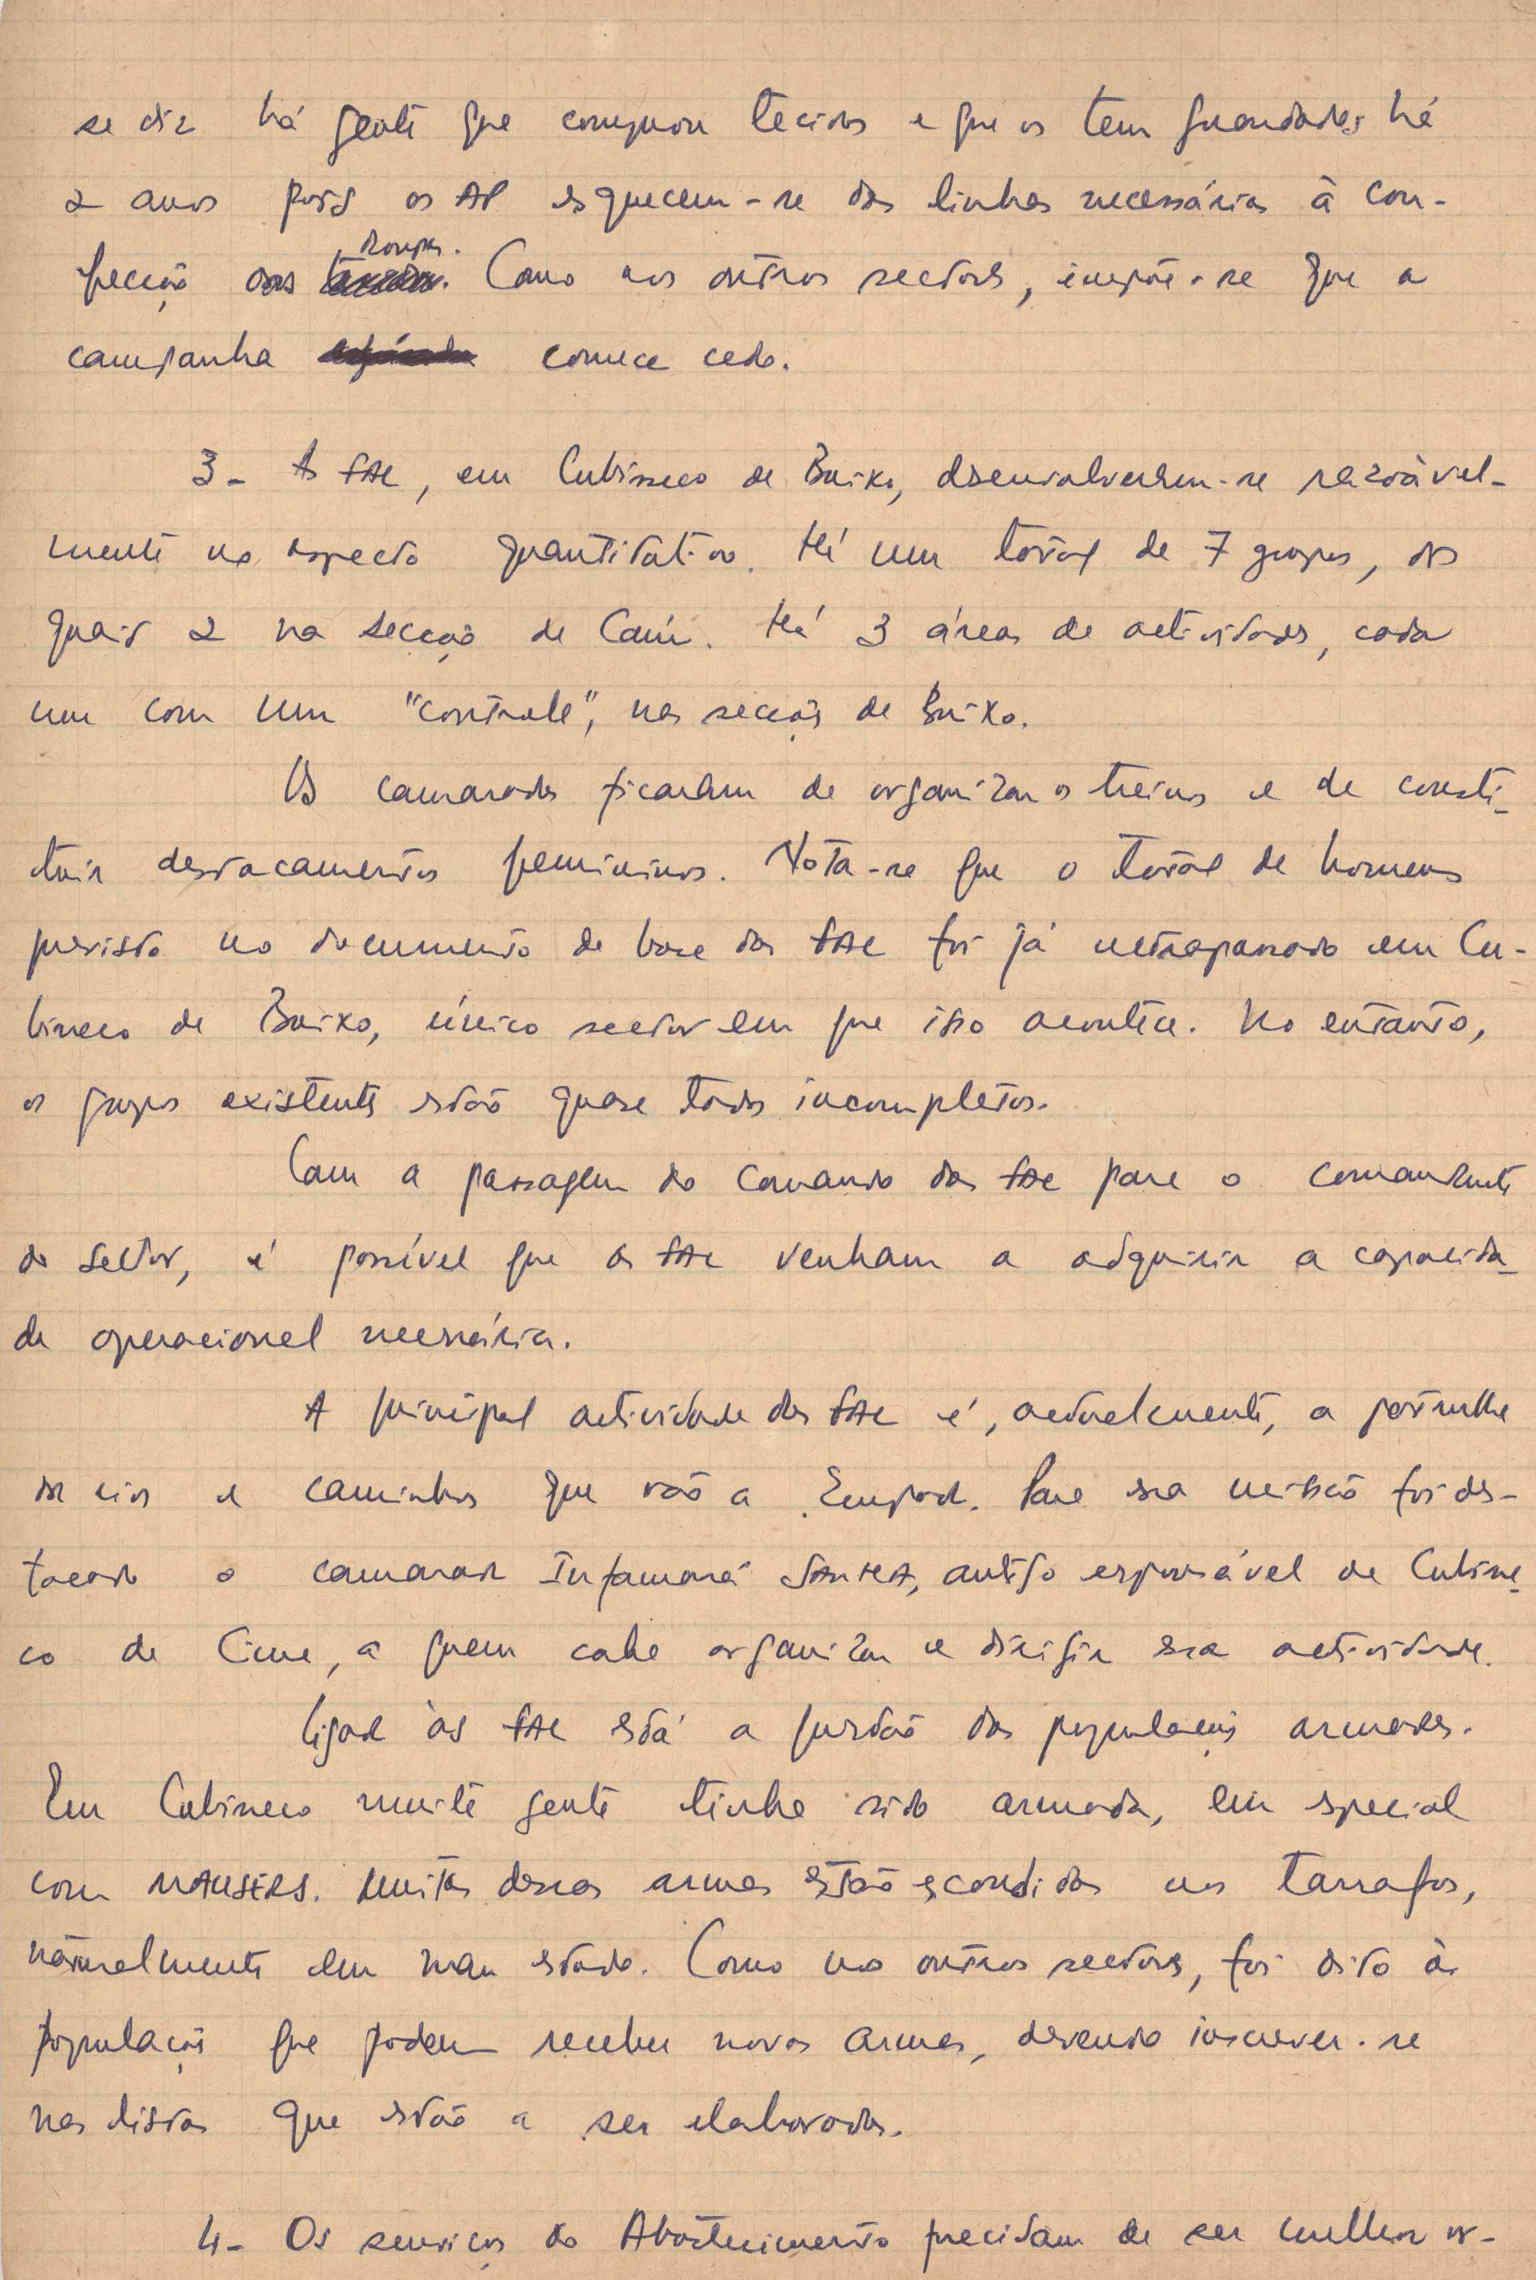 se diz há gente que comprou tecidos e que os tem guardados há
2 anos pois os AP esquecem-se das linhas necessárias à con-
fecção das roupas. Como nos outros sectores, impõe-se que a
campanha comece cedo.
3- As FAL, em Cubisseco de Baixo, desenvolveram-se razoàvel-
mente no aspecto quantitativo. Há um total de 7 grupos, dos
quais 2 na secção de Caur. Há 3 áreas de actividades, cada
um com um "controle", nas secções de Baixo.
Os camaradas ficaram de organizar os treinos e de consti-
tuir destacamentos femininos. Nota-se que o total de homens
previsto no documento de base das FAL foi já ultrapassado em Cu-
bisseco de Baixo, único sector em que isso acontece. No entanto,
os grupos existentes estão quase todos incompletos.
Com a passagem do comando das FAL para o comandante
do sector, é possível que as FAL venham a adquirir a capacida-
de operacional necessária.
A principal actividade das FAL é, actualmente, a patrulha
de rios e caminhos que vão a Empada. Para essa missão foi des-
tacado o camarada Infamará SANHÁ, antigo responsável de Cubisse-
co de Cima, a quem cabe organizar e dirigir essa actividade.
Ligada às FAL está a questão das populações armadas.
Em Cubisseco muita gente tinha sido armada, em especial
com MAUSERS. Muitas dessas armas estão escondidas nos tarrafos,
naturalmente em mau estado. Como nos outros sectores, foi dito à
população que podem receber novas armas, devendo inscrever-se
nas listas que estão a ser elaboradas.
4- Os serviços do Abastecimento precisam de ser melhor or-